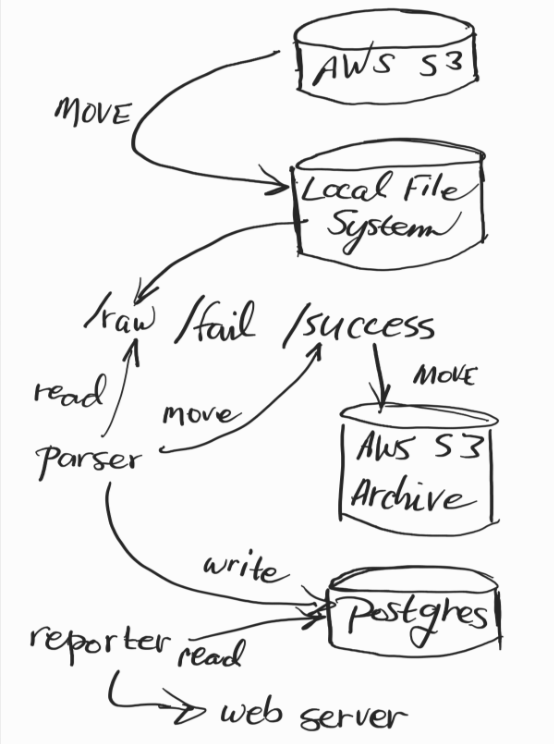 AWS S3
MOVE
Local File
System
/raw /fail /success
read
move
MOVE
parser
AWS S3
Archive
write
postgres
reporter
read
web server